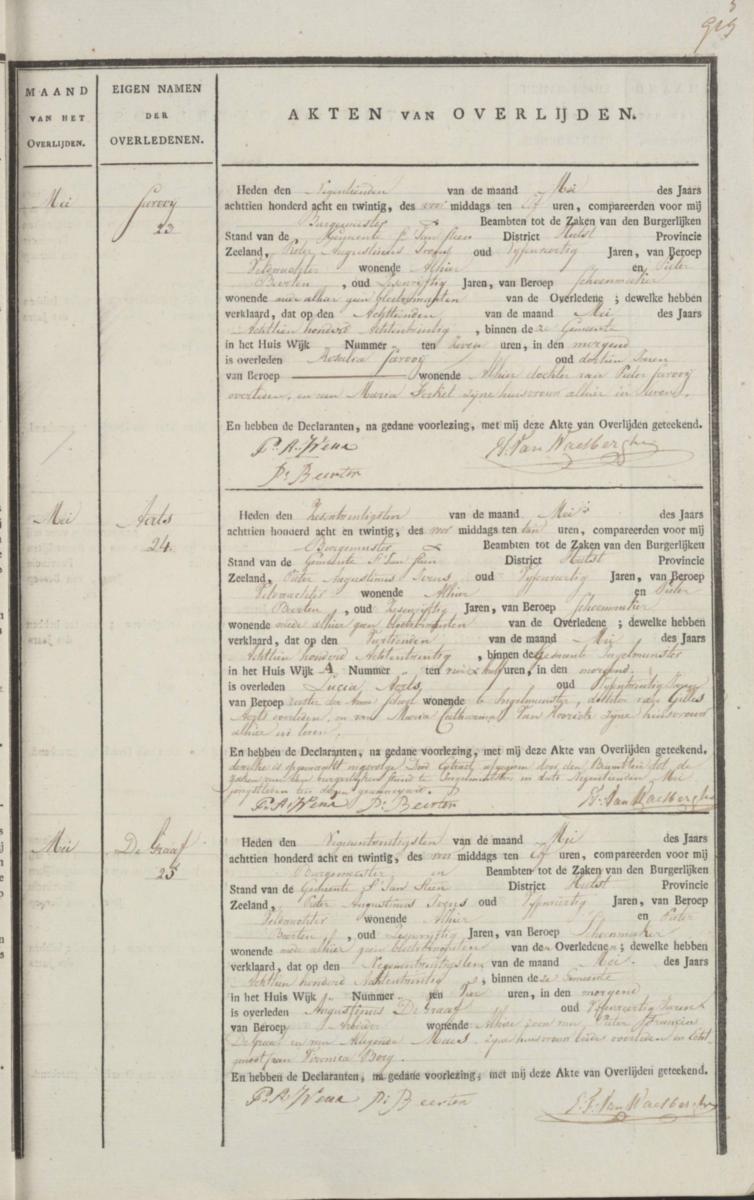 MAAND
VAN HET
OVERLIJDEN.
EIGEN NAMEN
DER
OVERLEDENEN.
AKTEN VAN OVERLIJDEN.
Mei
23
Heden den Negentienden van de maand Mei des Jaars
achttien honderd acht en twintig, des voor middags ten Elf uren, compareerden voor mij
Burgemeister Beambten tot de Zaken van den Burgerlijken
Stand van de Gemeente St Jan Steen District Hulst Provincie
Zeeland, Pieter Augustinus oud Vyfenveertig Jaren, van Beroep
Veldwachter wonende Alhier en Pieter
Beerten, oud Zesenvyftig Jaren, van Beroep Schoenmaker
wonende mede alhier geen bloedverwanten van de Overledene; dewelke hebben
verklaard, dat op den Achttienden van de maand Mei des Jaars
Achttien honderd Achtentwintig, binnen deze Gemeente
in het Huis Wijk Nummer ten zeven uren, in den morgend
is overleden Rosalia oud dertien Jaren
van Beroep wonende Alhier dochter van Pieter
overleden, en van Maria zyne huisvrouw alhier in leven.
En hebben de Declaranten, na gedane voorlezing, met mij deze Akte van Overlijden geteekend.
P. A. Wena
J. F. Van Waesberghe
Pr Beerten
Mei
Aerts
24.
Heden den Zesentwintigsten van de maand Mei des Jaars
achttien honderd acht en twintig, des voor middags ten tien uren, compareerden voor mij
Burgemeester Beambten tot de Zaken van den Burgerlijken
Stand van de Gemeente St Jan Steen District Hulst Provincie
Zeeland, Pieter Augustinus oud Vyfenveertig Jaren, van Beroep
Veldwachter wonende Alhier en Pieter
Beerten, oud Zesenvyftig Jaren, van Beroep Schoenmaker
wonende mede alhier geen bloedverwanten van de Overledene; dewelke hebben
verklaard, dat op den van de maand Mei des Jaars
Achttien honderd Achtentwintig, binnen de Gemeente Ingelmunster
in het Huis Wijk A Nummer ten uren, in den morgend.
is overleden Lucia Aerts, oud Vyfentwintig Jaren
van Beroep wonende te Ingelmunster, dochter van Gilles
Aerts overleden, en van Maria Catharina Van Hoorick zyne huisvrouw
alhier in leven.
En hebben de Declaranten, na gedane voorlezing, met mij deze Akte van Overlijden geteekend.
dezelve is opgemaakt ingevolge Dood Extract, afgegeven door den Beambten tot de
zaken van den burgerlyken stand te Ingelmunster in dato Negentienden Mei
P. A. Wena Pr Beerten J. F. Van Waesberghe
Mei
De Graaf
25
Heden den Negenentwintigsten van de maand Mei des Jaars
achttien honderd acht en twintig, des voor middags ten Elf uren, compareerden voor mij
Burgemeester Beambten tot de Zaken van den Burgerlijken
Stand van de Gemeente St Jan Steen District Hulst Provincie
Zeeland, Pieter Augustinus oud Vyfenveertig Jaren, van Beroep
Veldwachter wonende Alhier en Pieter
Beerten, oud Zesenvyftig Jaren, van Beroep Schoenmaker
wonende mede alhier geen bloedverwanten van den Overledenen; dewelke hebben
verklaard, dat op den Negenentwintigsten van de maand Mei. des Jaars
Achttien honderd Achtentwintig, binnen deze Gemeente
in het Huis Wijk Nummer ten Vier uren, in den morgend
is overleden Augustinus De Graaf oud Vyfenveertig Jaren
van Beroep Arbeider wonende Alhier zoon van Pieter Francies
De Graaf en van Maes zyne huisvrouw beide overleden en
Veronica
En hebben de Declaranten, na gedane voorlezing, met mij deze Akte van Overlijden geteekend.
P. A. Wena Pr Beerten J. F. Van Waesberghe